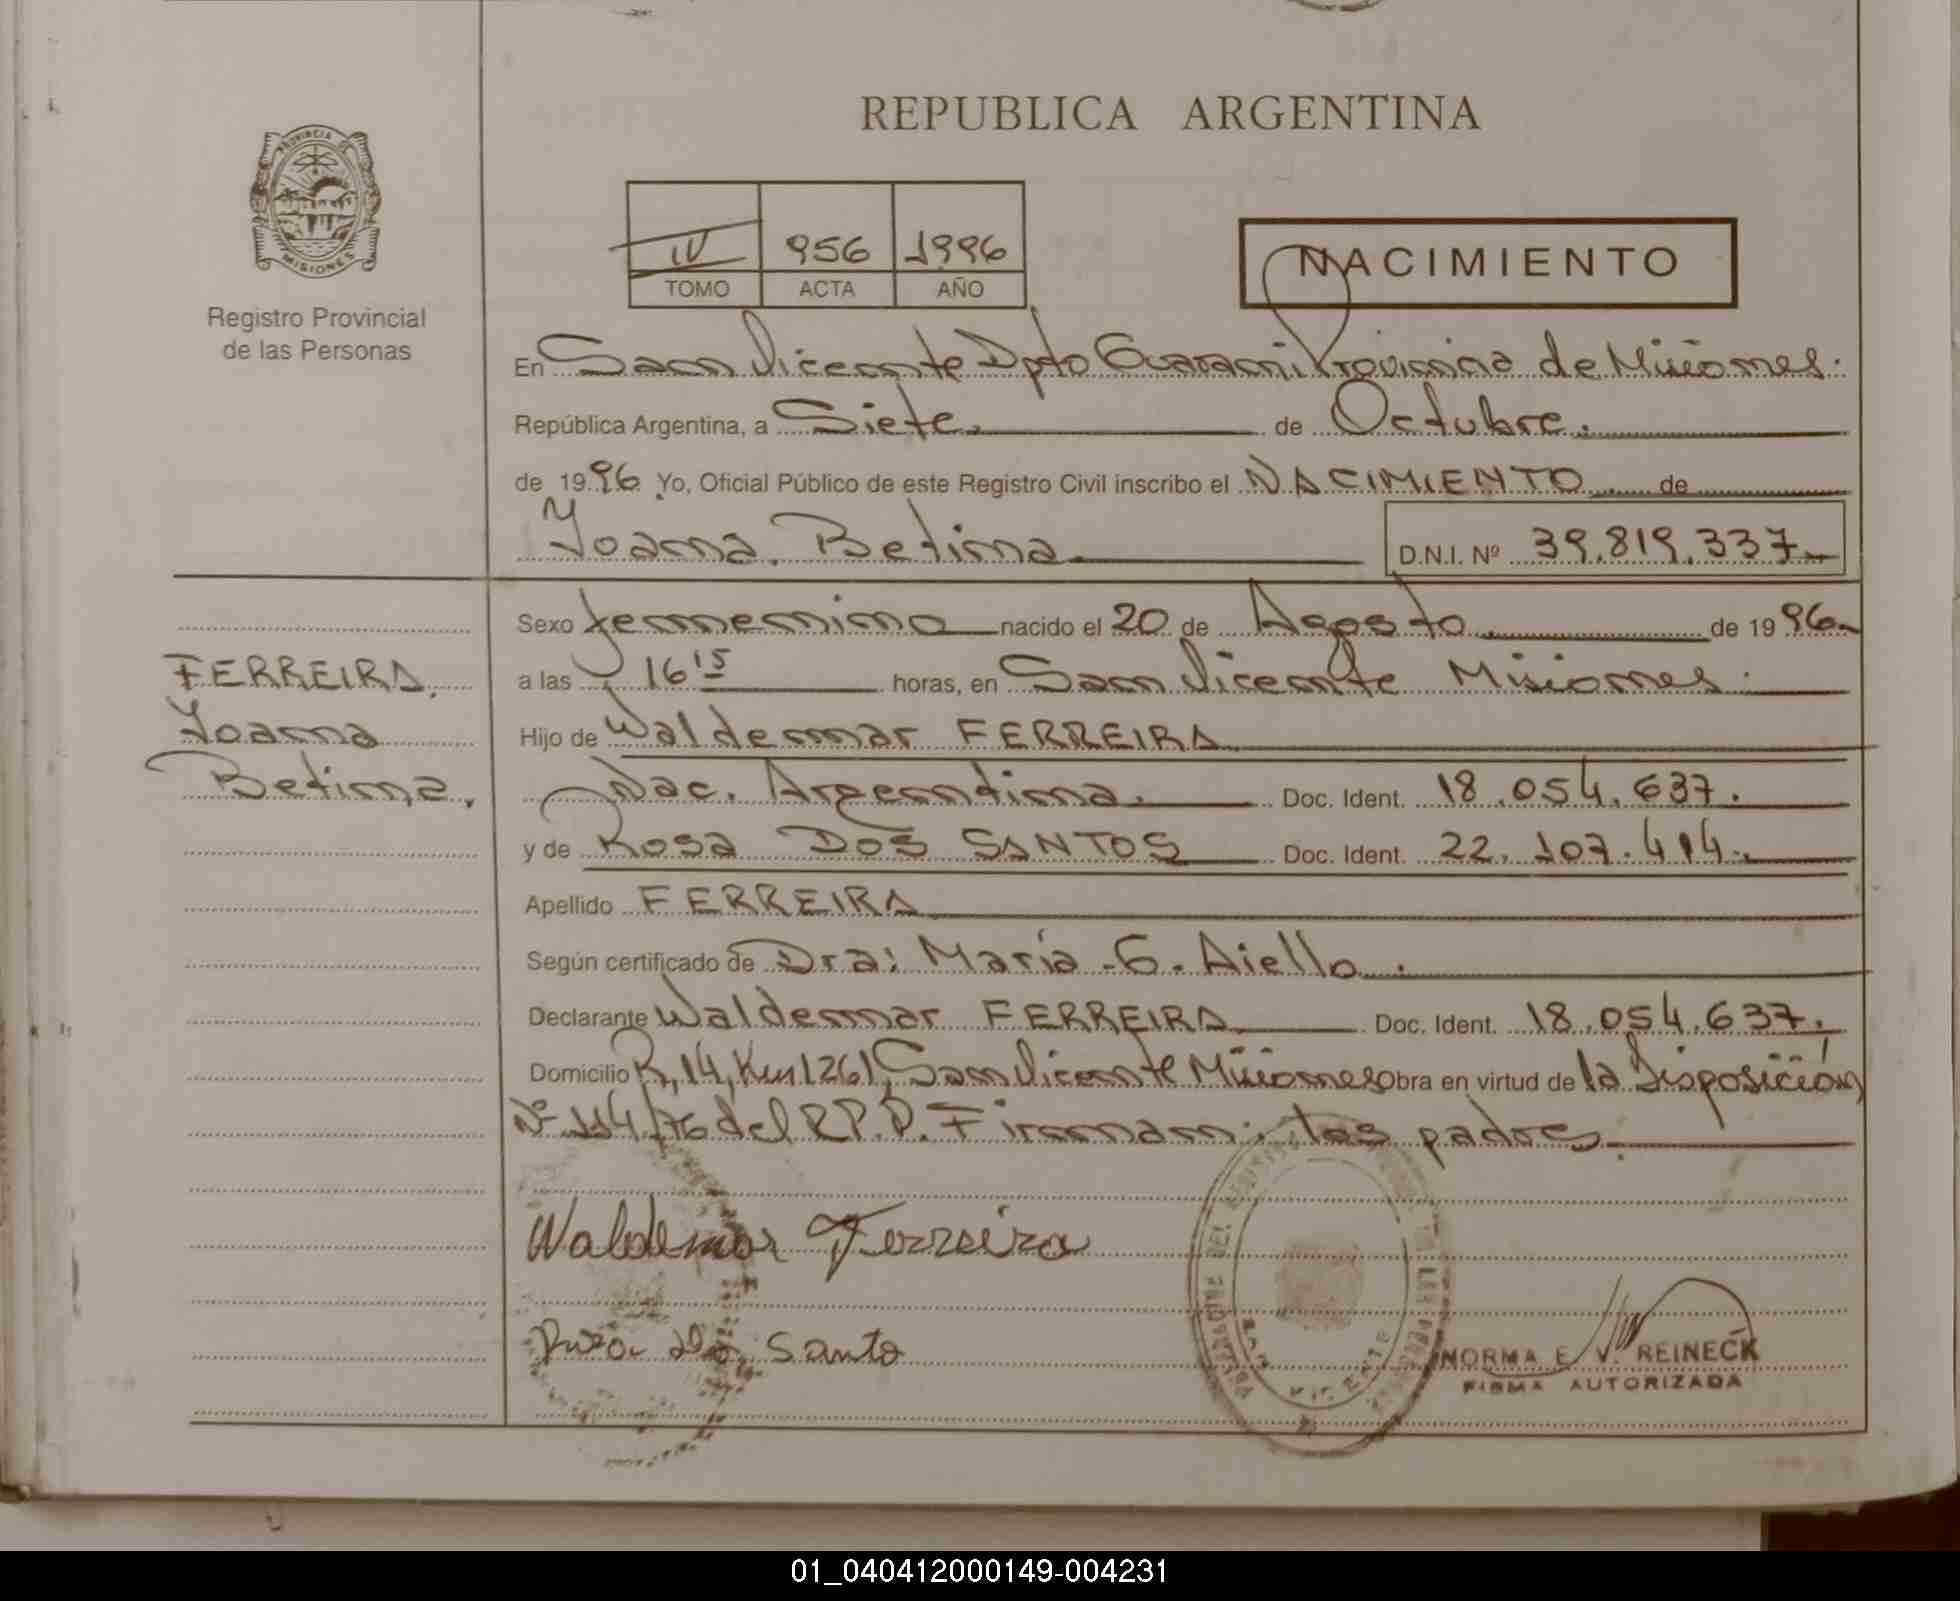 REPUBLICA ARGENTINA
PROVINCIA DE
MISIONES
Registro Provincial
de las Personas
IV 956 1996
TOMO ACTA AÑO
NACIMIENTO
En San Vicente Dpto Guarani Provincia de Misiones.
República Argentina, a Siete. de Octubre.
de 1996 Yo, Oficial Público de este Registro Civil inscribo el NACIMIENTO de
Yoana Betina D.N.I. Nº 39.819.337.-
Sexo femenino nacido el 20 de Agosto de 1996.-
FERREIRA,
a las 16 15 horas, en San Vicente Misiones.
Yoana
Hijo de Waldemar FERREIRA
Betina,
Nac. Argentina. Doc. Ident. 18.054.637.
y de Rosa DOS SANTOS Doc. Ident. 22.107.414.
Apellido FERREIRA
Según certificado de Dra: María G. Aiello.
Declarante Waldemar FERREIRA Doc. Ident. 18.054.637.
Domicilio R,14,Km1261, San Vicente Misiones Obra en virtud de la Disposición
Nº 114/76 del R.P.P. Firman: los padres
Waldemar Ferreira
Rosa Dos Santo
NORMA E. V. REINECK
FIRMA AUTORIZADA
01_040412000149-004231